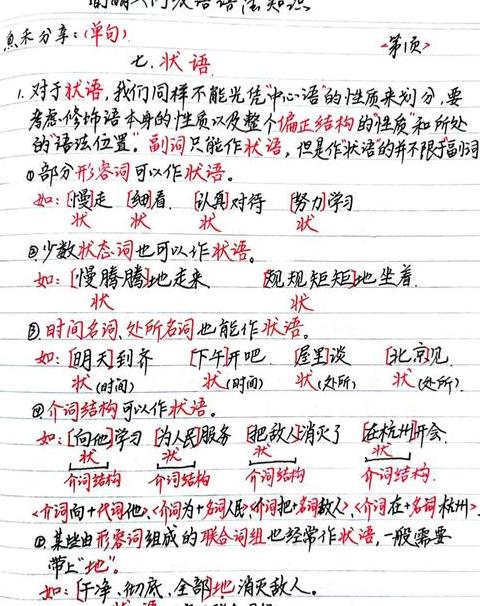 简明入门汉语语法知识
鱼禾分享:(单句)
<第1页>
七.状语
1.对于状语,我们同样不能光凭"中心语"的性质来划分,要
考虑修饰语本身的性质以及整个偏正结构的"性质"和所处
的"语法位置"。副词只能作状语,但是作"状语"的并不限于副词
①部分形容词可以作状语。
如:[慢]走 [细]看 [认真]对待 [努力]学习
状 状 状 状
②少数状态词也可以作状语。
如:[慢腾腾]地走来 [规规矩矩]地坐着
状 状
③时间名词、处所名词也能作状语。
如:[明天]到齐 [下午]开吧 [屋里]谈 [北京]见
状(时间) 状(时间) 状(处所) 状(处所).
④介词结构可以作状语。
如:[向他]学习 [为人民]服务 [把敌人]消灭了 [在杭州]开会
状 状 状 状
介词结构 介词结构 介词结构 介词结构.
<介词向+代词他>、<介词为+名词人民>、<介词把+名词敌人>、<介词在+名词杭州>.
④.某些由形容词组成的联合词组也经常作状语,一般需要
带上"地"。
如:[干净、彻底、全部]地消灭敌人。